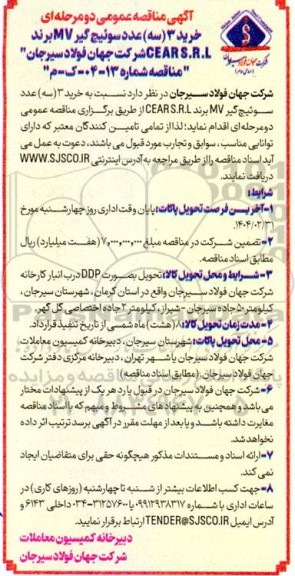 آگهی مناقصه عمومی دو مرحله ای
خرید ۳ (سه) عدد سوئیچ گیر MV برند
CEAR S.R.L شرکت جهان فولاد سیرجان
"مناقصه شماره ۱۳-۰۴-ک-م"
شرکت جهان فولاد سیرجان در نظر دارد نسبت به خرید ۳ (سه) عدد
سوئیچ گیر MV برند CEAR S.R.L از طریق برگزاری مناقصه عمومی
دو مرحله ای اقدام نماید؛ لذا از تمامی تامین کنندگان معتبر که دارای
توانایی مناسب، سوابق و تجارب مورد قبول می باشند، دعوت به عمل می
آید اسناد مناقصه را از طریق مراجعه به آدرس اینترنتی WWW.SJSCO.IR
دریافت نمایند.
شرایط:
۱- آخرین فرصت تحویل پاکات: پایان وقت اداری روز چهارشنبه مورخ
۱۴۰۴/۰۲/۳۱.
۲- تضمین شرکت در مناقصه مبلغ ۷,۰۰۰,۰۰۰,۰۰۰ (هفت میلیارد) ریال
مطابق اسناد مناقصه.
۳- شرایط و محل تحویل کالا: تحویل بصورت DDP درب انبار کارخانه
شرکت جهان فولاد سیرجان واقع در استان کرمان، شهرستان سیرجان،
کیلومتر ۵۰ جاده سیرجان - شیراز، کیلومتر ۲ جاده اختصاصی گل گهر.
۴- مدت زمان تحویل کالا: ۸ (هشت) ماه شمسی از تاریخ تنفیذ قرارداد.
۵- محل تحویل پاکات: شهرستان سیرجان، دبیرخانه کمیسیون معاملات
شرکت جهان فولاد سیرجان یا شهر تهران، دبیرخانه مرکزی دفتر شرکت
جهان فولاد سیرجان. (مطابق اسناد مناقصه)
۶- شرکت جهان فولاد سیرجان در قبول یا رد هر یک از پیشنهادات مختار
می باشد و همچنین به پیشنهادهای مشروط و مبهم که با اسناد مناقصه
مغایرت داشته باشد و یا بعد از مهلت مقرر در آگهی برسد ترتیب اثر داده
نخواهد شد.
۷- ارائه اسناد و مستندات مذکور هیچگونه حقی برای متقاضیان ایجاد
نمی کند.
۸- جهت کسب اطلاعات بیشتر از شنبه تا چهارشنبه (روزهای کاری) در
ساعات اداری با شماره ۰۹۹۱۲۹۳۸۳۱۷ یا ۳۱۲۵۷۶۰۰-۰۳۴ داخلی ۶۱۴۳ و
آدرس ایمیل TENDER@SJSCO.IR ارتباط برقرار نمایید.
دبیرخانه کمیسیون معاملات
شرکت جهان فولاد سیرجان